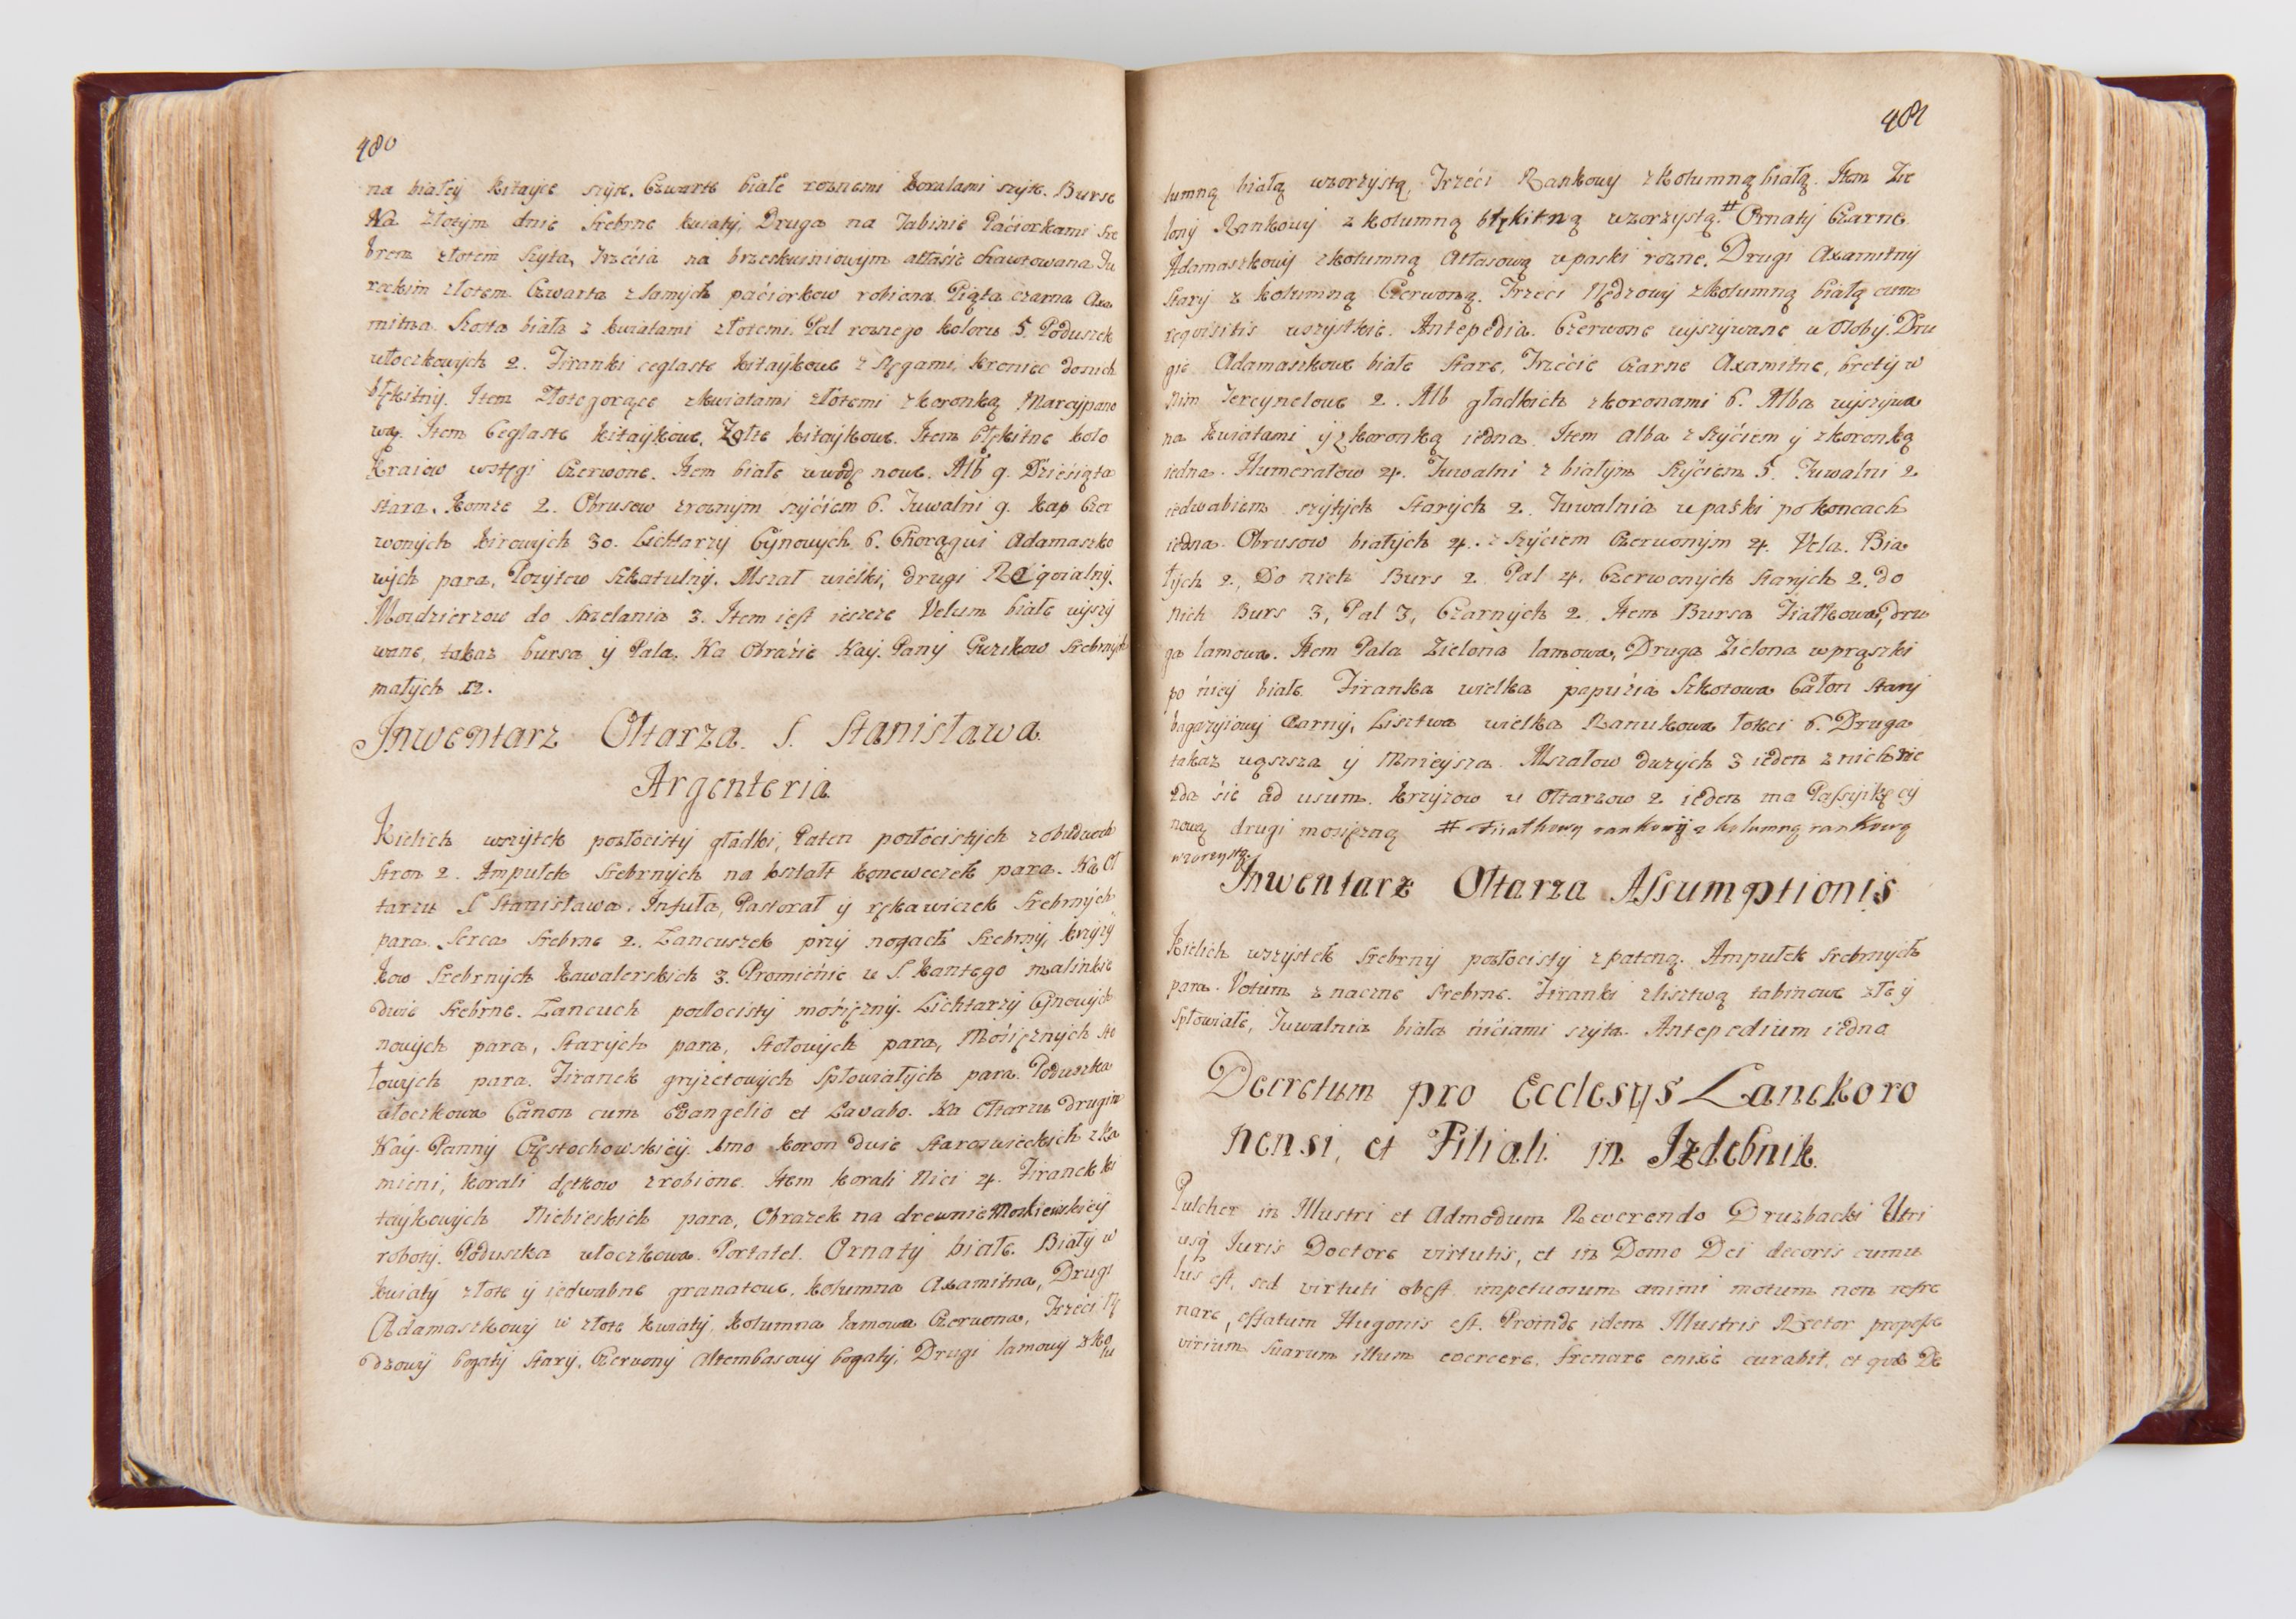 480
na białey kitayce szyte. Czwarte białe roznemi koralami szyte. Burse
Na złotym dnie srebrne kwiaty, Druga na Tabinie Paćiorkami sre
brem złotem szyta, Trzećia na brzeskwiniowym attłaśie chawtowana Tu
reckim złotem. Czwarta z samych paćiorkow robiona. Piąta czarna Axa
mitna. Szosta biała z kwiatami złotemi. Pal roznego koloru 5. Poduszek
włoczkowych 2. Firanki ceglaste kitaykowe z Stęgami, kroniec
błękitny. Item złotogorące z kwiatami złotemi z koronką Marcypano
wą. Item Ceglaste kitaykowe, Zołte kitaykowe. Item błękitne koło
Kraiow wstęgi czerwone. Item białe w wodę nowe. Alb 9. Dziesiąta
stara. Komze 2. Obrusow z roznym szyćiem 6. Tuwalni 9. kap Czer
wonych kirowych 30. Lichtarzy Cynowych 6. Chorągwi Adamaszko
wych para, Pozytow szkatulny. Mszał wielki, drugi
Mozdzierzow do Strzelania 3. Item iest ieszcze Velum białe wyszy
wane, takaz bursa y Pala. Na Obraźie Nay. Pany Guzikow srebrnych
małych 12.
Inwentarz Ołtarza S. Stanisława.
Argenteria
Kielich wszytek pozłocisty gładki, Paten pozłocistych z obudwoch
stron 2. Ampułek srebrnych na kształt koneweczek para. Na Oł
tarzu S Stanisława. Infuła, Pastorał y rękawiczek Srebrnych
para. Serca srebrne 2. Łancuszek przy nogach srebrny, krzyży
kow Srebrnych kawalerskich 3. Promieńie u S. Kantego malinkie
dwie srebrne. Łancuch pozłocisty mośiężny. Lichtarzy Cynowych
nowych para, starych para, stołowych para, Mośiężnych sto
łowych para. Firanek gryzetowych spłowiałych para. Poduszka
włoczkowa Canon cum Evangelio et Lavabo. Na Ołtarzu drugim
Nay. Panny Częstochowskiey. 1mo koron dwie staroswieckich z ka
mieni, korali dętkow zrobione. Item korali Nici 4. Firanek ki
taykowych Niebieskich para, Obrazek na drewnie Moskiewskiey
roboty. Poduszka włoczkowa. Portatel. Ornaty białe. Biały w
kwiaty złote y iedwabne granatowe, kolumna Axamitna, Drugi
Adamaszkowy w złote kwiaty, kolumna lamowa Czerwona, Trzeći Nę
dzowy bogaty stary, Czerwony Altembasowy bogaty, Drugi lamowy z ko
lu
481
lumną białą wzorzystą, Trzeći Rankowy z kolumną białą. Item Zie
lony Rankowy z kolumną błękitną wzorzystą. # Ornaty Czarne
Adamaszkowy z kolumną Atłasową w paski rozne. Drugi Axamitny
stary z kolumną Czerwoną. Trzeci Nędzowy z kolumną białą cum
requisitis wszystkie. Antepedia. Czerwone wyszywane w Osoby. Dru
gie Adamaszkowe białe stare, Trzećie Czarne Axamitne, brety w
Nim Tercynelowe 2. Alb gładkich z koronami 6. Alba wyszywa
na kwiatami y z koronką iedna. Item alba z szyćiem y z koronką
iedna. Humerałow 4. Tuwalni z białym szyćiem 5. Tuwalni 2
iedwabiem szytych starych 2. Tuwalnia w paski po koncach
iedna. Obrusow białych 4. z szyćiem Czerwonym 4. Vela. Bia
łych 2, Do nich Burs 2 Pal 4. Czerwonych starych 2. do
Nich Burs 3, Pal 3, Czarnych 2. Item Bursa Fiałkowa, dru
ga lamowa. Item Pala Zielona lamowa, Druga Zielona w prąszki
po niey białe. Firanka wielka papuźia Szkotowa Galon stary
bagazyiowy czarny, Lisztwa wielka Ranukowa łokci 6. Druga
takaz węzsza y Mnieysza. Mszałow duzych 3 ieden z nich nie
zda śie ad usum. krzyzow u Ołtarzow 2 ieden ma Passyikę cy
nową drugi mosięzną # Fiałkowy rankowy z kolumną rankową
wzorzystą.
Inwentarz Ołtarza Assumptionis
Kielich wszystek srebrny pozłocisty z pateną. Ampułek srebrnych
para. Votum znaczne srebrne. Firanki z lisztwą tabinowe złe y
spłowiałe, Tuwalnia biała nićiami szyta. Antepedium iedno
Decretum pro Ecclesys Lanckoro
nensi, et Filiali in Izdebnik.
Pulcher in Illustri et Admodum Reverendo Druzbacki Utri
usq Iuris Doctore virtutis, et in Domo Dei decoris cumu
lus est, sed virtuti obest impetuorum animi motum non refre
nare, effatum Hugonis est. Proinde idem Illustris Rector propesse
virium suarum illum coercere, frenare enixè curabit, et quo De